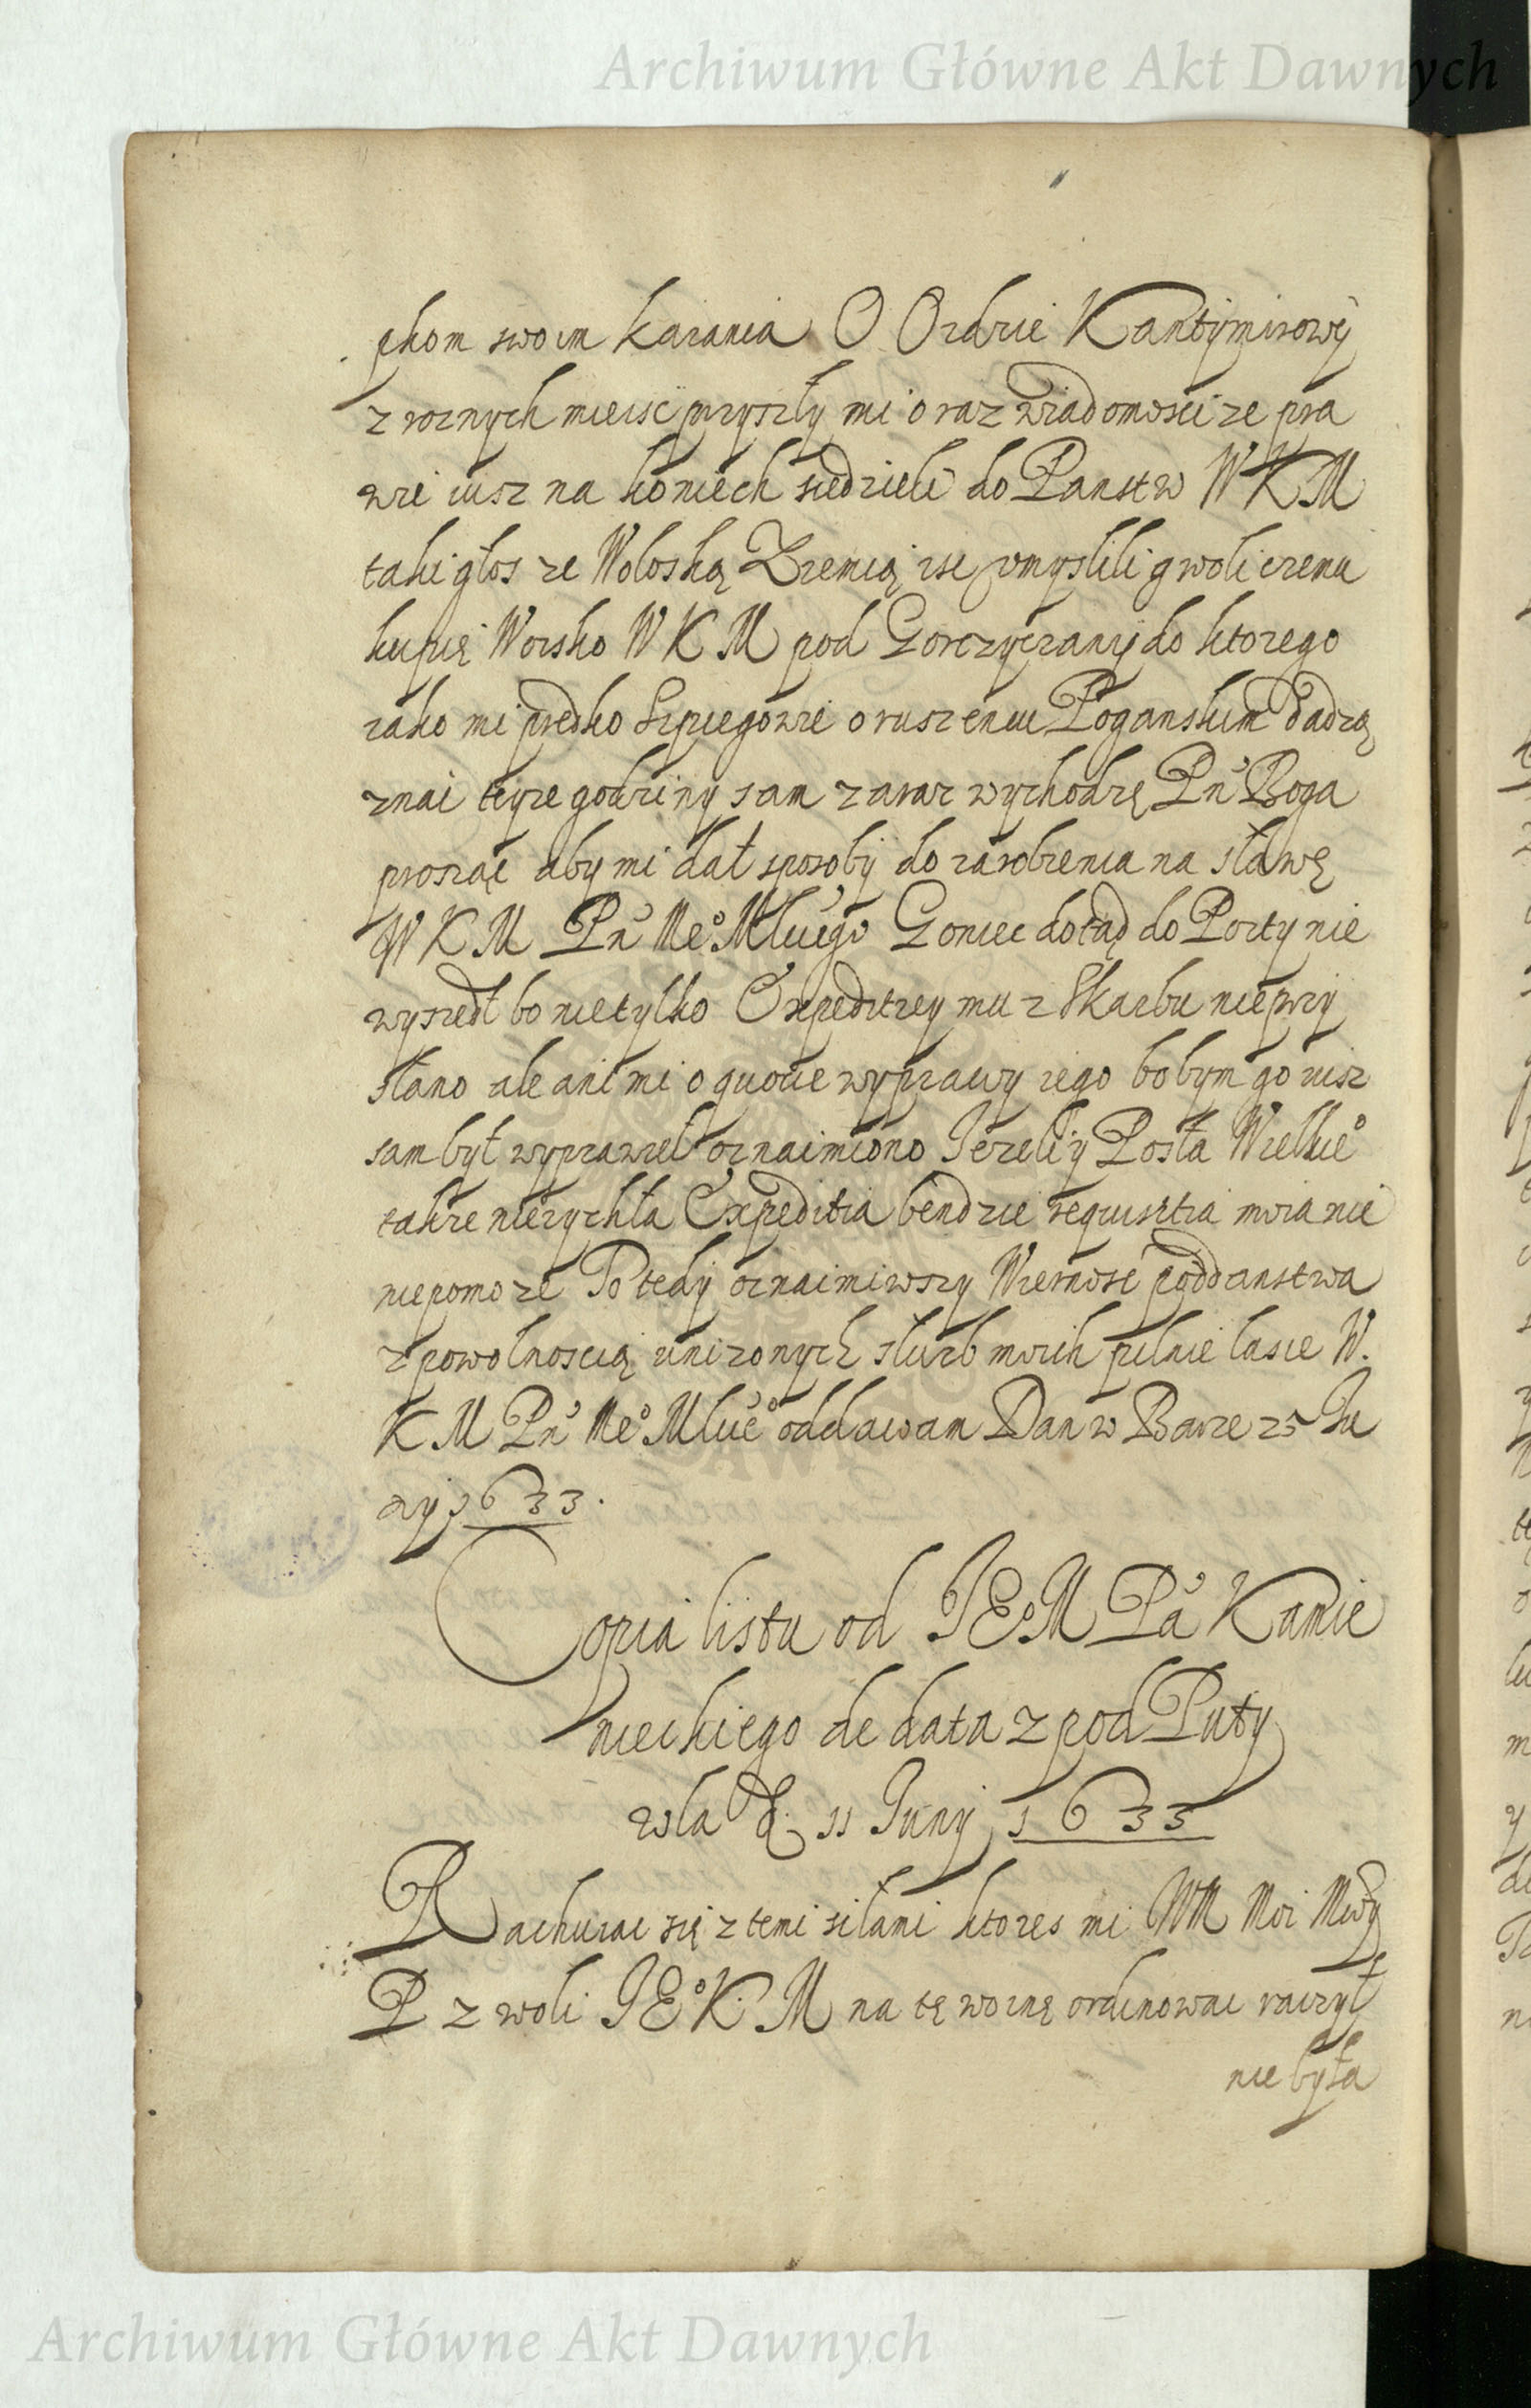 Archiwum Główne Akt Dawnych
phom swoim karania O Ordzie Kantymirowÿ
z roznych mieisc przyszły mi oraz wiadomosci ze pra
wie iusz na koniech siedzieli do Panstw WKM
taki głos ze Wołoską Ziemią isc umyslili gwoli czemu
kupię Woisko WKM pod Gorczyczany do ktorego
iako mi prędko Szpiegowie o ruszeniu Poganskim dadzą
znai teyze godziny sam zaraz wychodzę Pn̉ Boga
prosząc aby mi dał sposoby do zarobienia na sławę
WKM Pn̉ Me° Młuego Goniec dotąd do Porty nie
wyszedł bo nie tylko Expeditiey mu z Skarbu nie przy
słano ale ani mi o quocie wyprawy iego bo bym go iusz
sam był wyprawieł oznaimiono Jezeli y Posła Wielkie°
takze nierychła Expeditia bendzie requisitia moia nic
niepomoze To tedy oznaimiwszy Wiernosc poddanstwa
z powolnoscią unizonych słuzb moich pilnie łasce W.
KM Pn̉ Me° Młue° oddawam Dan w Barze 25 Ju
nÿ 1633.
Copia listu od JE°M Pa̓ Kamie
nieckiego de data z pod Puty
wla d. 11 Juny 1633
Rachuiac się z temi siłami ktores mi WM Moi Mwÿ
P z woli JE°K.M na tę woinę ordinowac raczył
nie była
Archiwum Główne Akt Dawnych